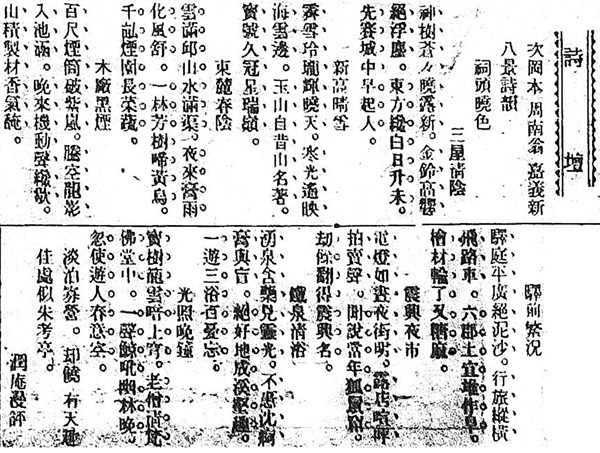 詩壇
次岡本周南翁嘉義新
八景詩韻
祠頭曉色
三屋清陰
神樹蒼々曉露新。金鈴高響
絕浮塵。東方纔白日升未。
先賽城中早起人。
新高晴雪
霽雪玲瓏輝曉天。寒光遙映
海雲邊。玉山自昔山名著。
寶號久冠呈瑞
東麓春陰
雲滿邱山水滿渠。夜來膏雨
化風舒。一林芳樹啼黃鳥。
千畝煙園長菜蔬。
木廠黑煙
百尺煙筒破紫嵐。騰空龍影
入池涵。晚來機動聲纔歇。
山積製材香氣醃。
驛前繁況
驛庭平廣絕泥沙。行旅縱橫
飛路車。六郡土宜堆作阜。
檜材輸了又糖麻。
震興夜市
電燈如晝夜街明。露店喧呼
拍賣聲。聞說當年狐鼠窟。
劫餘翻得震興名。
鐵泉清浴
湧泉含藥見靈光。不 沈痾
膏與肓。絕好地成溪壑趣。
一遊三浴百憂忘。
光照晚鐘
寶樹 雲暗上穹。老僧 梵
佛堂中。一聲鯨吼幽林晚。
忽使遊人 空。
淡泊寡營。却饒有天趣
佳處似朱考亭。
潤庵漫評